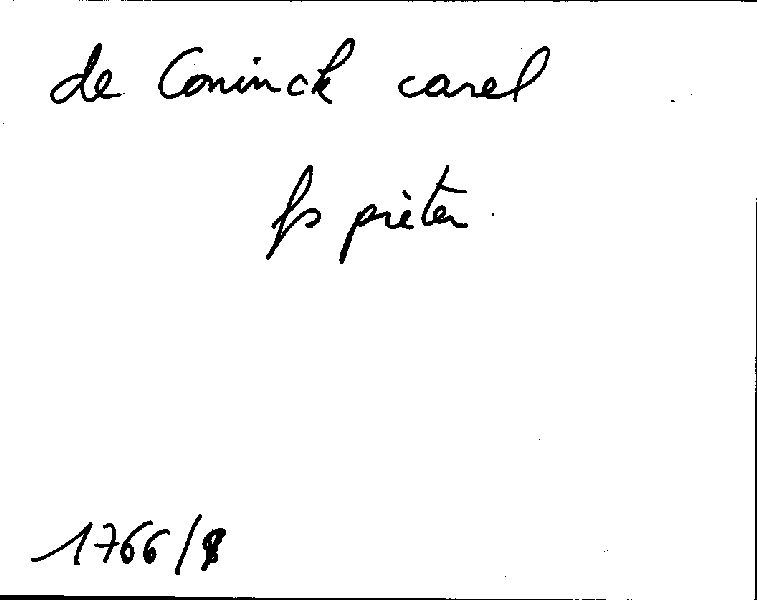 de Coninck carel
fs pieter
1766/8